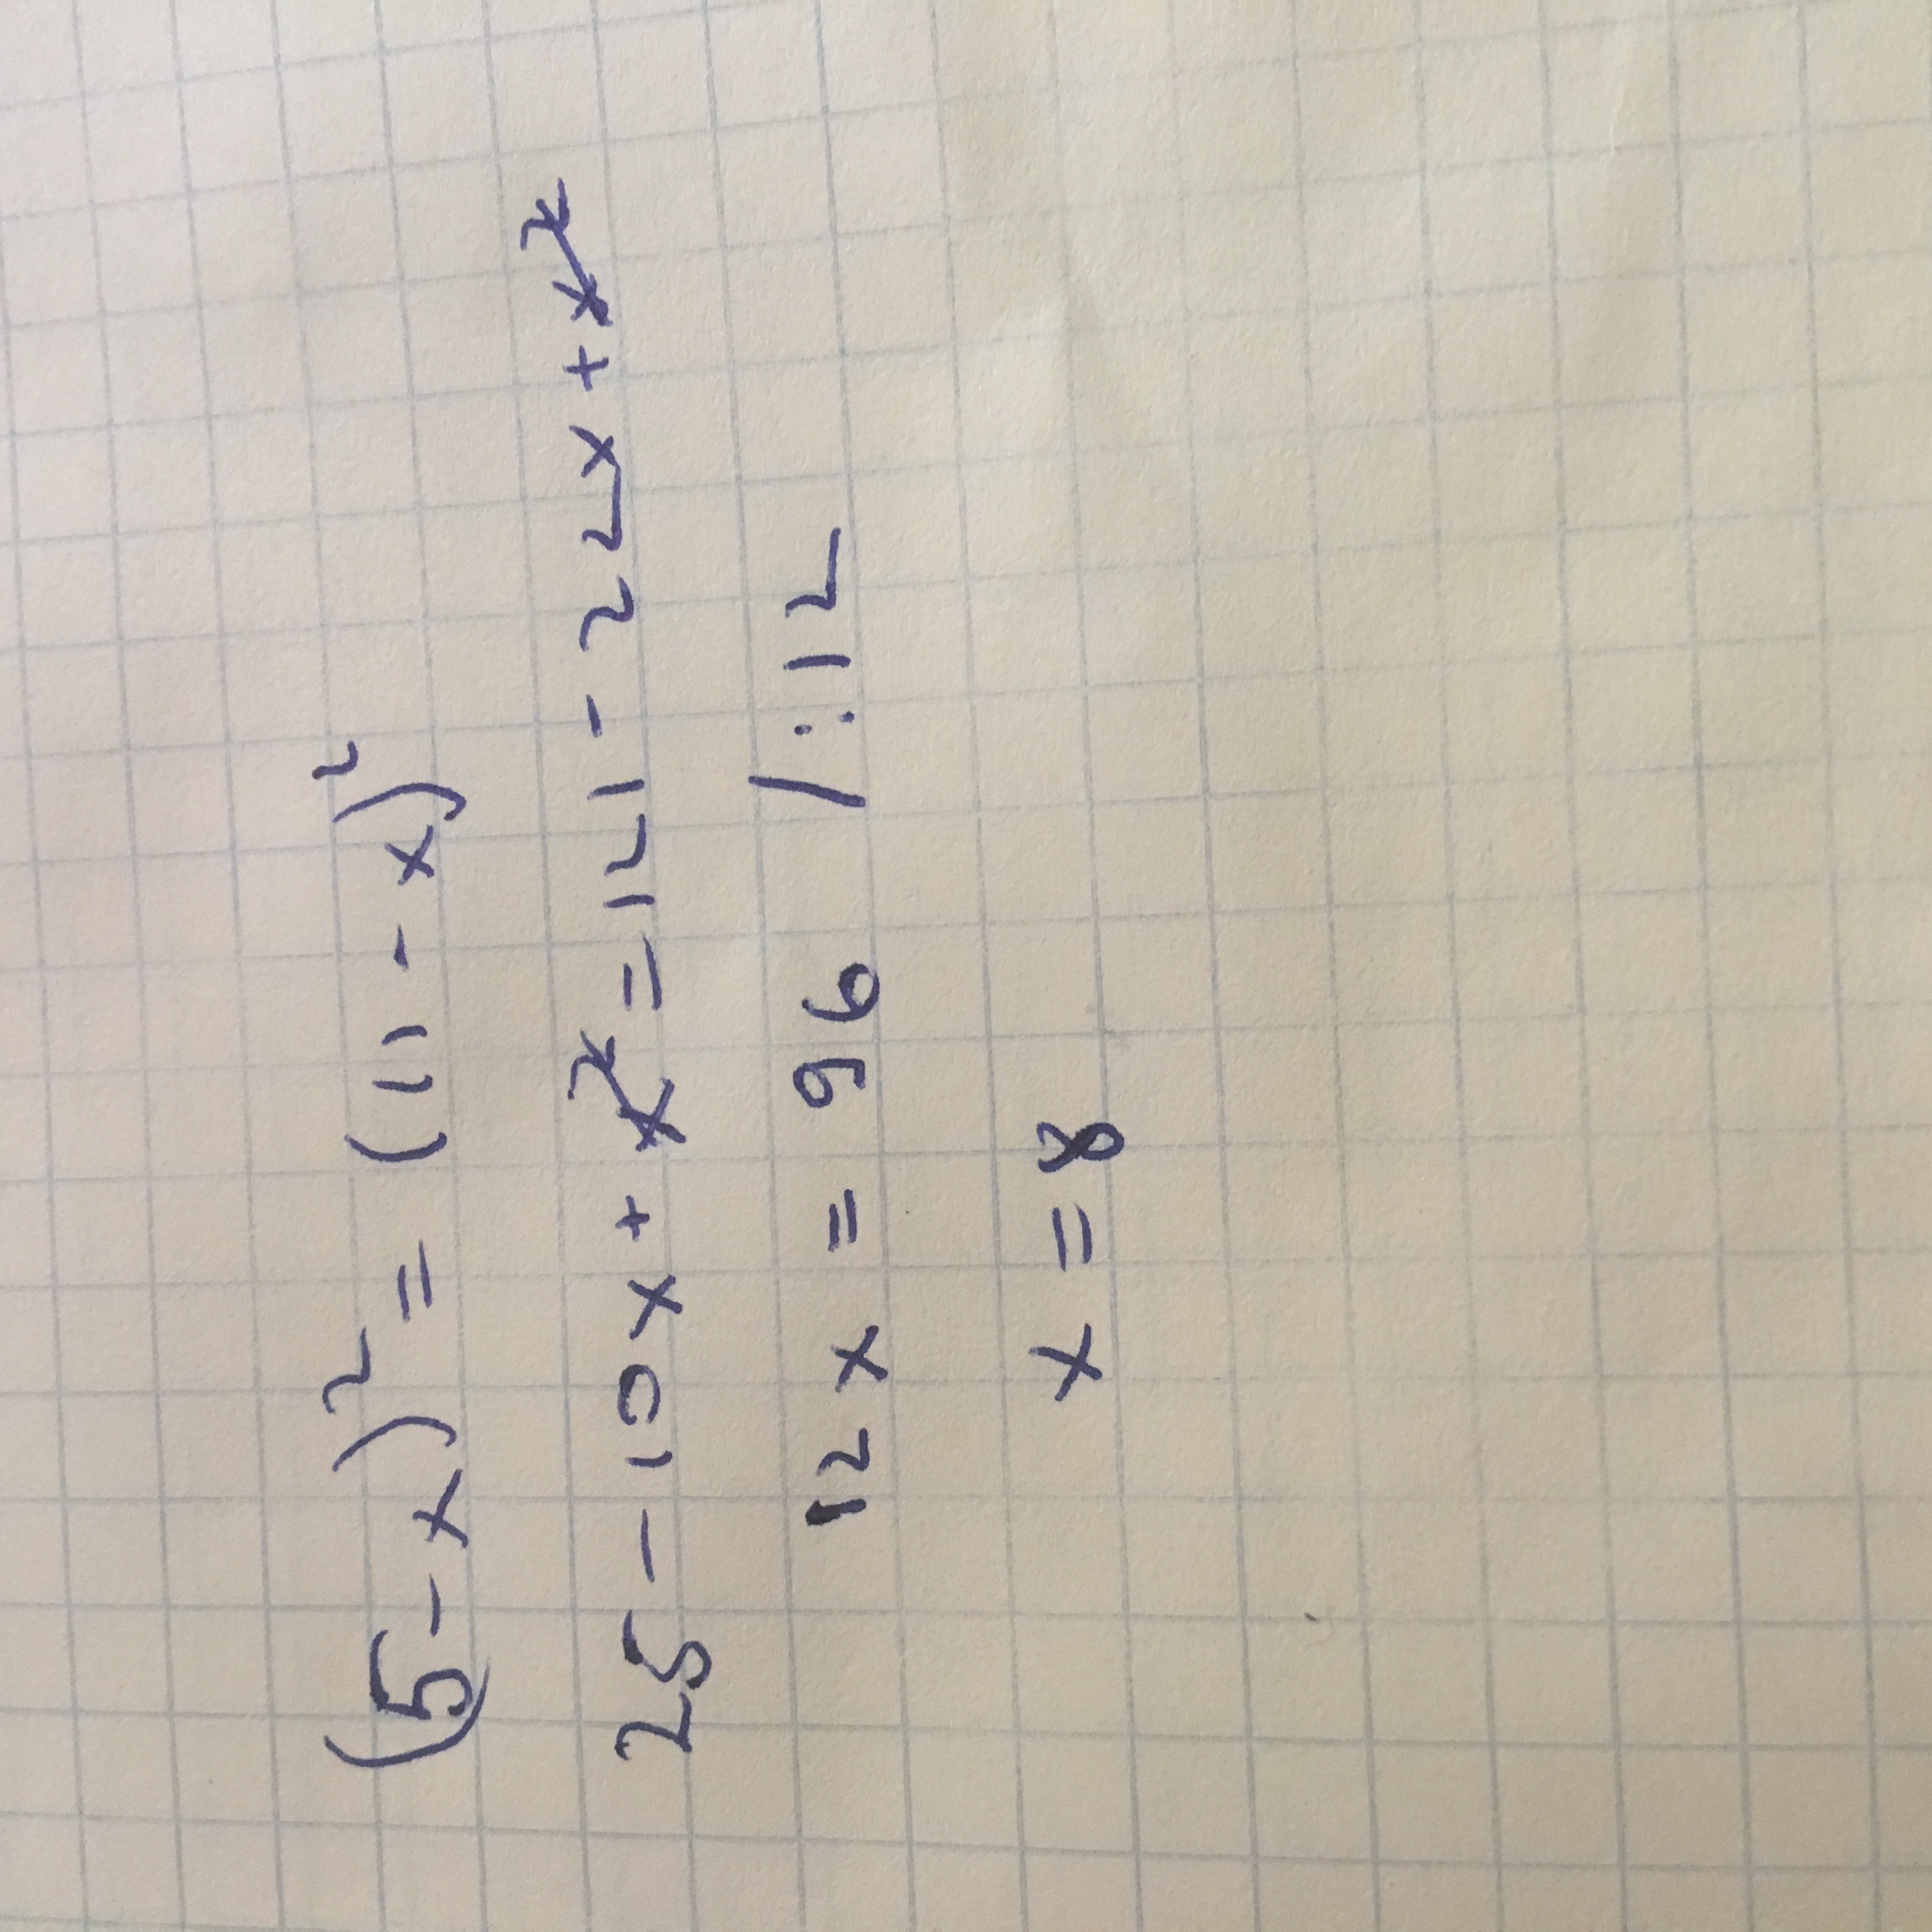 (5-x)² = (11-x)²
25-10x+x²=121-22x+x²
12x = 96 /:12
x=8